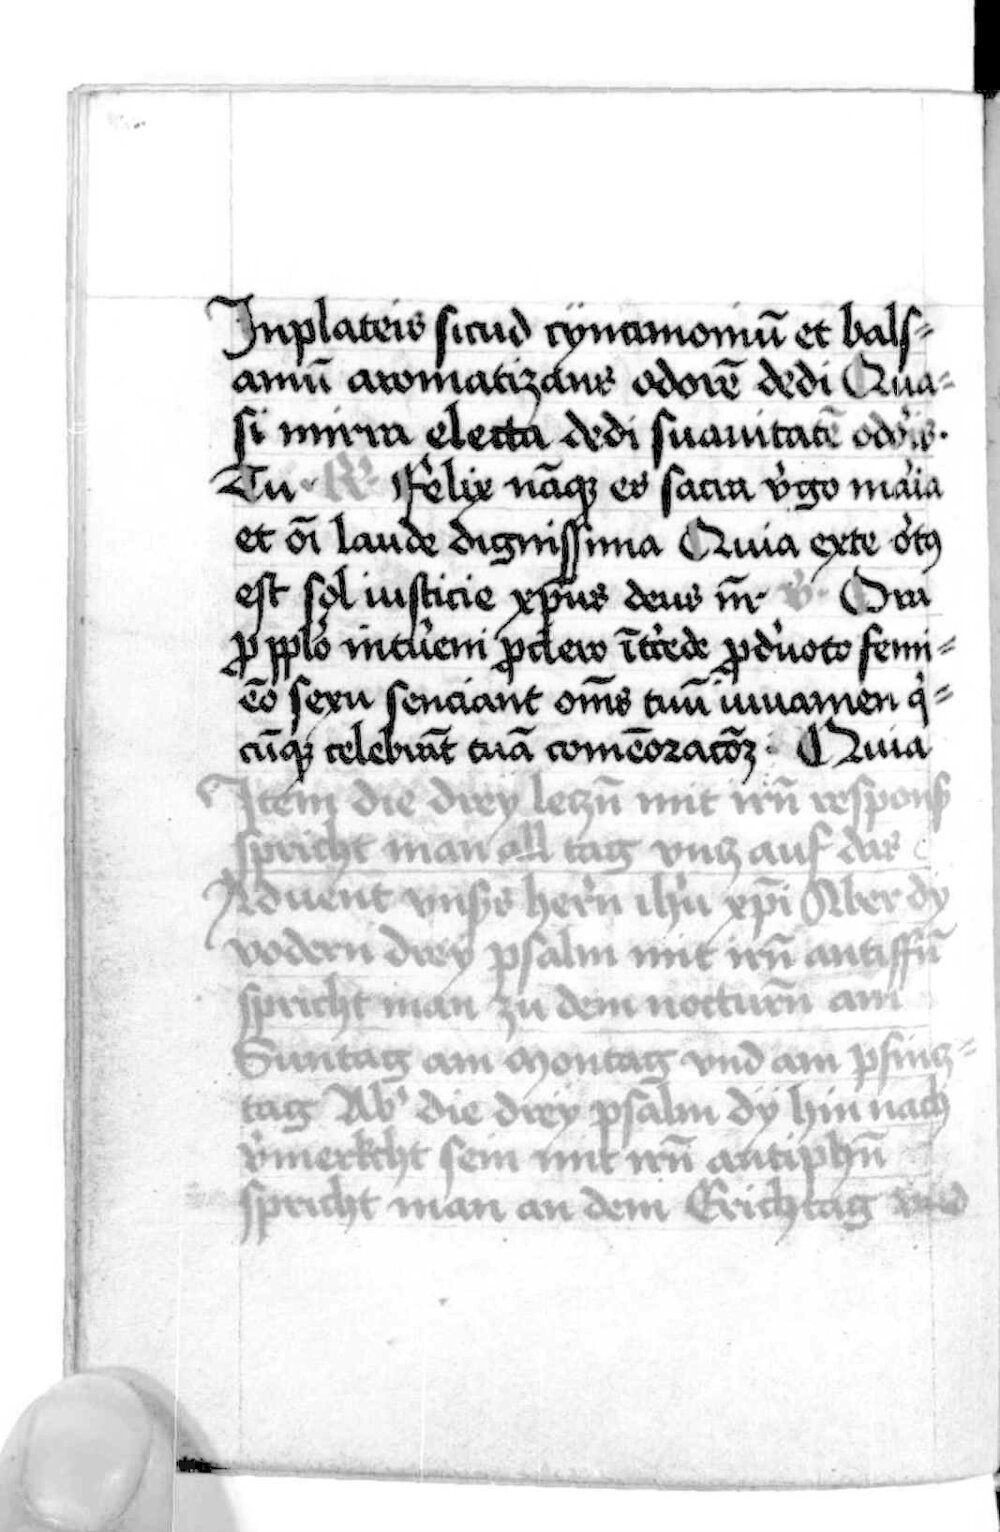 Inplateis sicud cÿnamomiū et bals⸗
amū aromatizans odorē dedi Qua⸗
si mirra electa dedi suauitatē odor̾is·
Tu· R̾· Felix nāqꝫ es sacra v̾go mar̾ia
et ōi laude dignissima Quia exte or̾tꝰ
est sol iusticie xp̄us deus nr̄· v̾· Ora
ꝓ pplō intuēni ꝓclero īt̾cede ꝓdeuoto femi⸗
eō sexu senciant om̄s tuū iuuamen q̾⸗
cūqꝫ celebrāt tuā comēoracōꝫ· Quia
Item die drey leczñ mit irñ respons
spricht man all tag vncz auf das
Aduent vnsers her̾n ih̄u xp̄i Aber dy
vodern drey psalm mit irñ antiffñ
spricht man zu dem notturñ am
Suntag am montag vnd am pfincz⸗
tag Ab̾ die dreÿ psalm dÿ hin nach
v̾merkcht sein mit irñ antiphñ
spricht man an dem Erichtag vnd